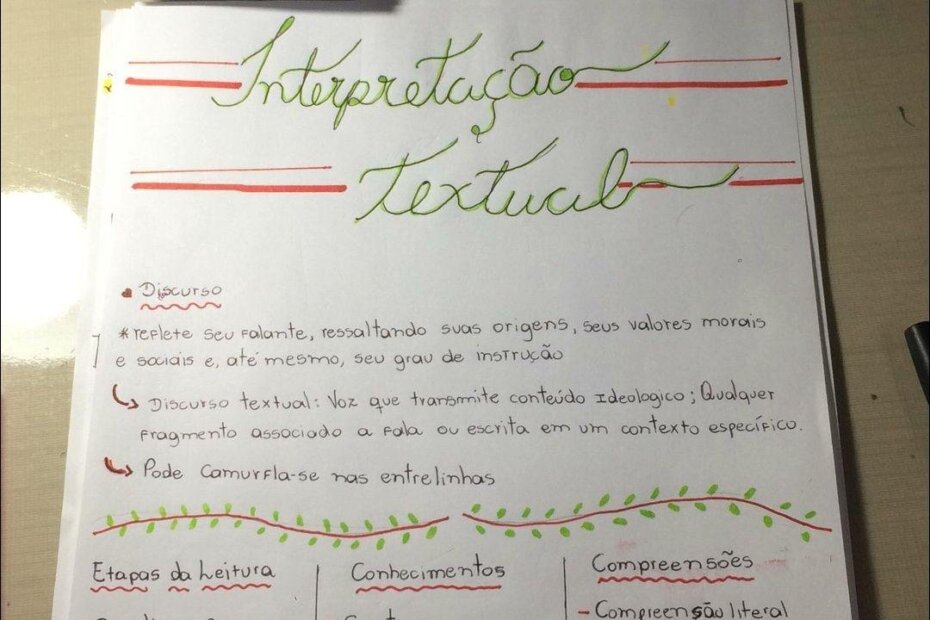 Interpretação
Textual
Discurso
*reflete seu falante, ressaltando suas origens, seus valores morais
e sociais e, até mesmo, seu grau de instrução
Discurso textual: Voz que transmite conteúdo Ideologico; Qualquer
fragmento associado a fala ou escrita em um contexto específico.
Pode camurfla-se nas entrelinhas
Etapas da Leitura
Conhecimentos
Compreensões
- Compreensão literal